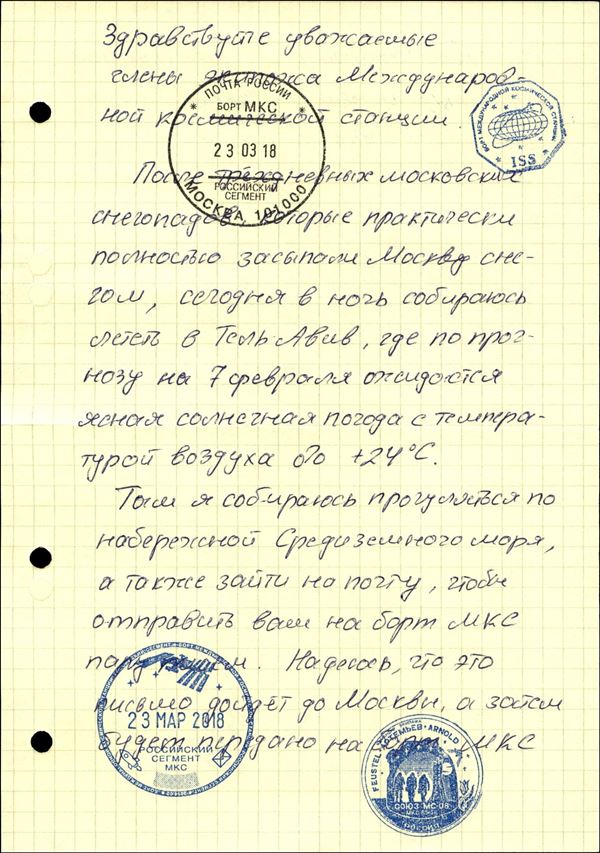 Здравствуйте уважаемые
члены экипажа Международ-
ной космической станции.
ПОЧТА РОССИИ
БОРТ МКС
23 03 18
РОССИЙСКИЙ
СЕГМЕНТ
МОСКВА, 101000
БОРТ МЕЖДУНАРОДНОЙ КОСМИЧЕСКОЙ СТАНЦИИ
ISS
После трёхдневных московских
снегопадов, которые практически
полностью засыпали Москву сне-
гом, сегодня в ночь собираюсь
лететь в Тель Авив, где по прог-
нозу на 7 февраля ожидается
ясная солнечная погода с темпера-
турой воздуха до +24°С.
Там я собираюсь прогуляться по
набережной Средиземного моря,
а также зайти на почту, чтобы
отправить вам на борт МКС
пару писем. Надеюсь, что это
письмо дойдёт до Москвы, а затем
будет передано на борт МКС
23 МАР 2018
РОССИЙСКИЙ
СЕГМЕНТ
МКС
FEUSTEL • АРТЕМЬЕВ • ARNOLD
СОЮЗ МС-08
РОССИЯ